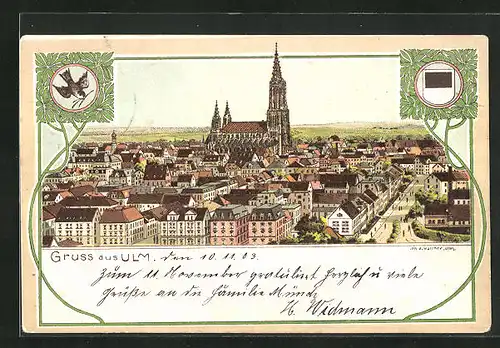 Gruss aus ULM, den 10.11.03.
Zum 11 November gratuliert herzlich u viele
Grüße an die Familie Münz
H. Widmann